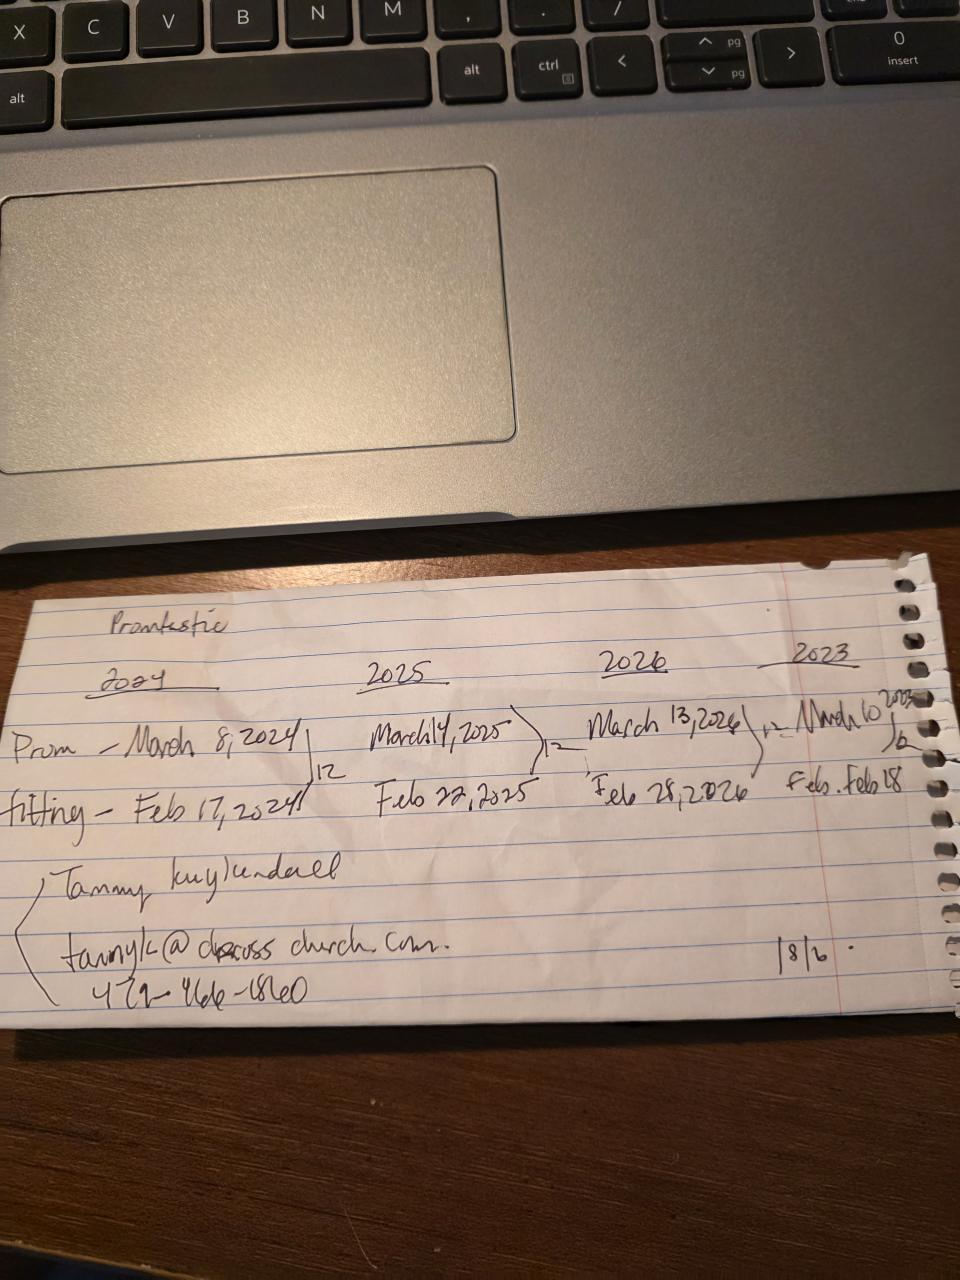 X C V B N M , . /
alt alt ctrl < ^ pg pg > 0 insert
Promtastic
2024 2025 2026 2023
Prom - March 8, 2024 March 14, 2025 March 13, 2026 March 10 2023
12 12 12
fitting - Feb 17, 2024 Feb 22, 2025 Feb 28, 2026 Feb. Feb 18
Tammy kuykendall
tammyk@ church.com.